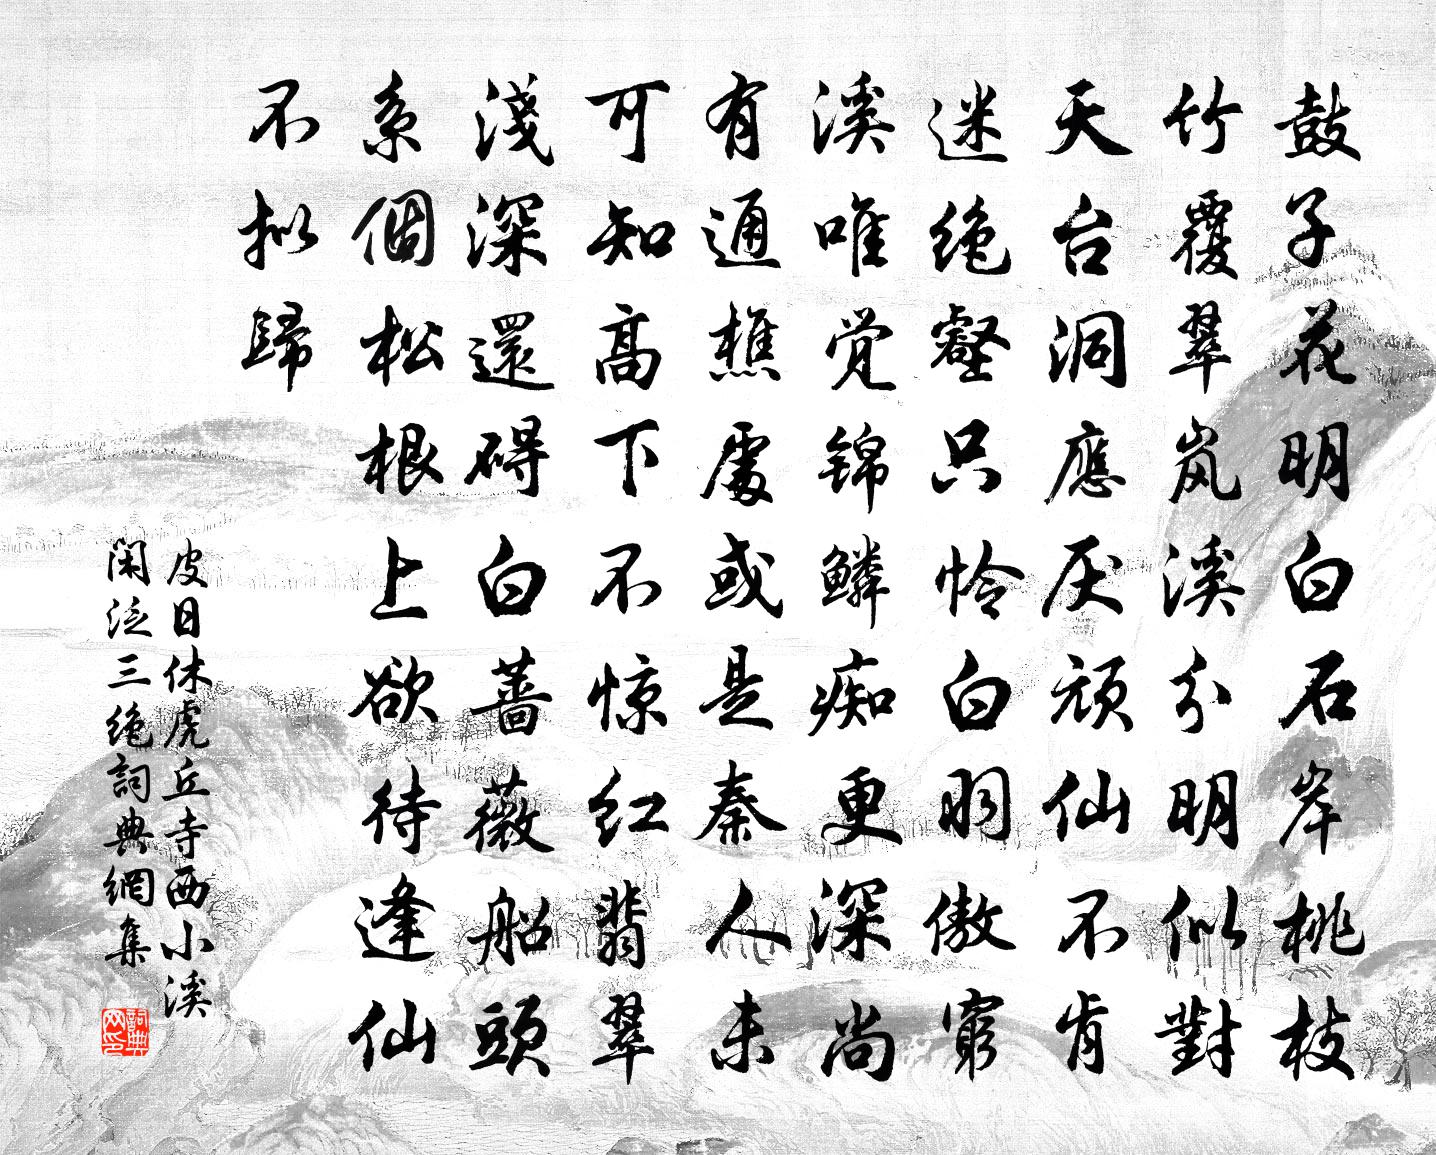 鼓子花明白石岸桃枝
竹覆翠岚溪分明似對
天台洞應厌頑仙不肯
迷绝壑只怜白羽傲窮
溪唯觉锦鳞痴更深尚
有通樵處或是秦人未
可知高下不惊红翡翠
淺深還碍白薔薇船頭
系個松根上欲待逢仙
不拟歸
皮日休虎丘寺西小溪
閑泛三绝詞典網集
詞典
网印